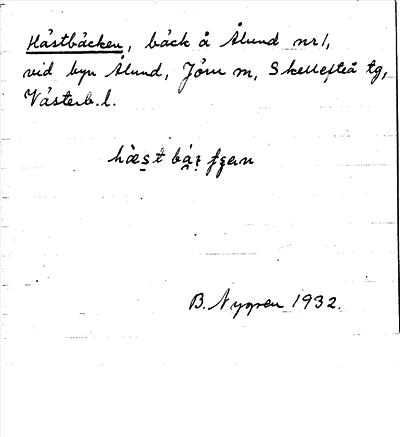 Hästbäcken, bäck å Ålund nr 1,
vid byn Ålund, Jörn sn, Skellefteå tg,
Västerb. l.
B. Nygren 1932.